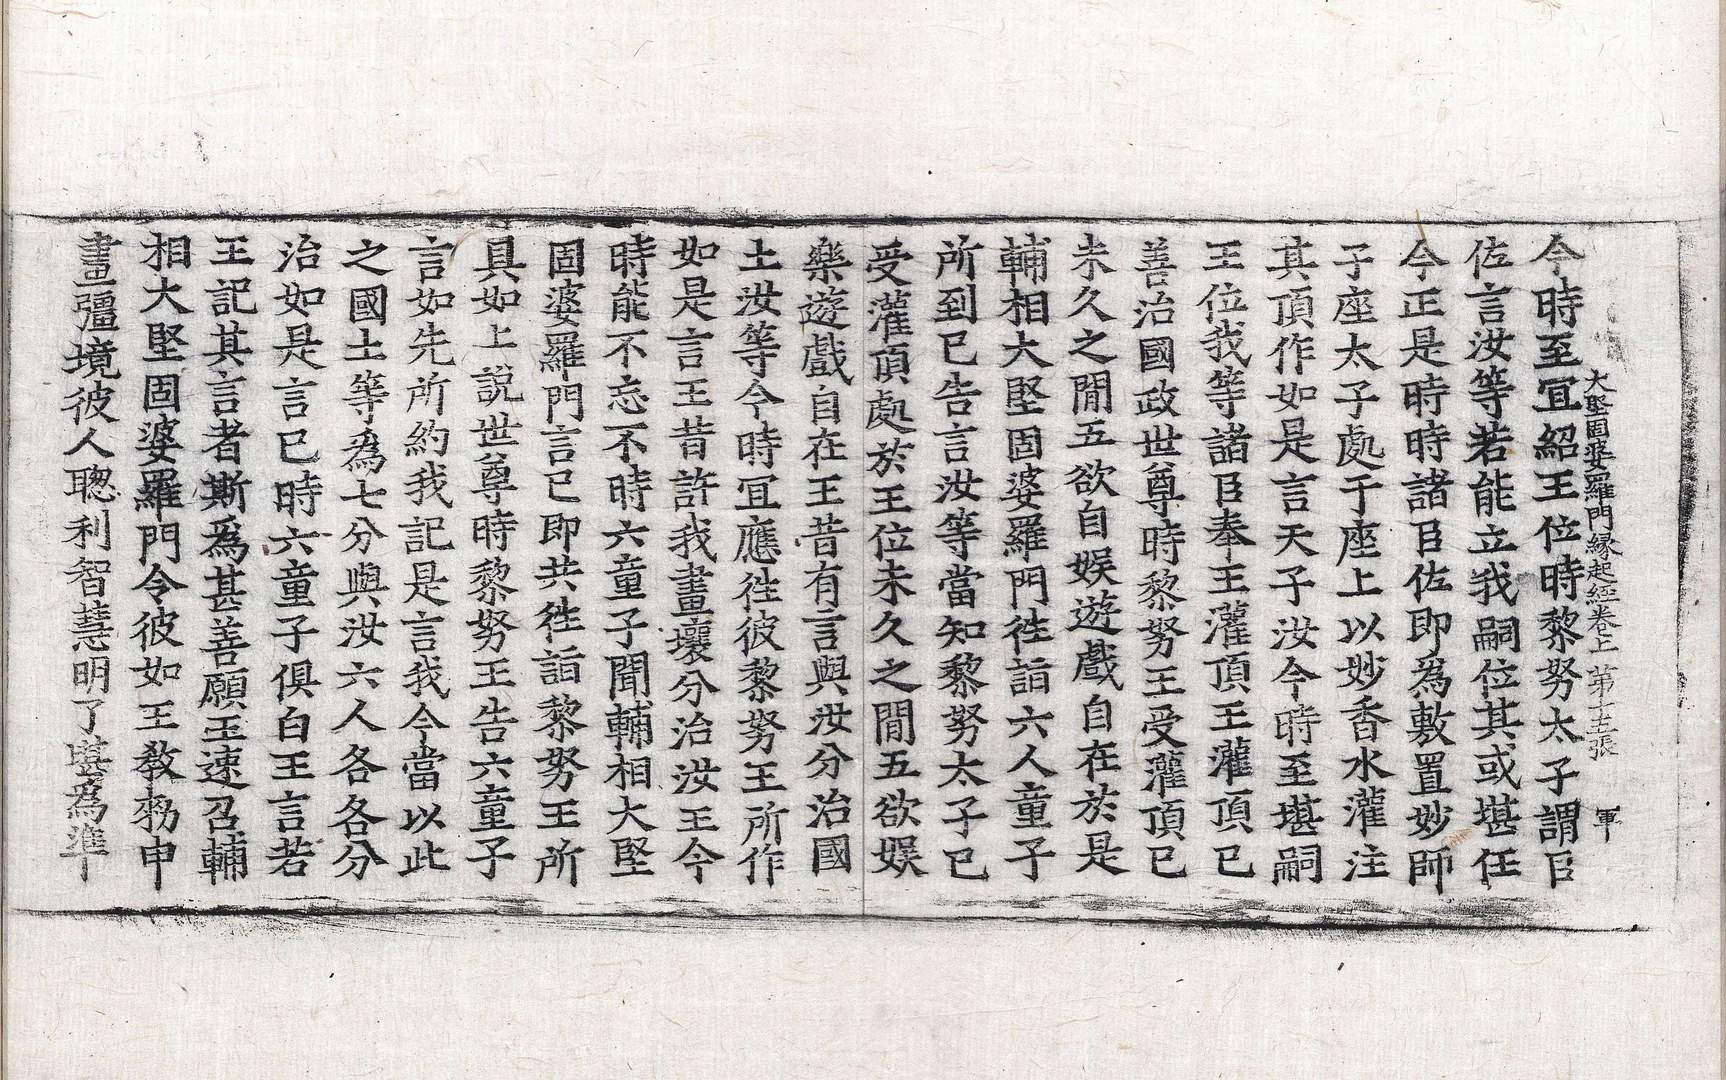 大堅固婆羅門縁起經卷上 第十五張 軍
今時至冝紹王位時黎努太子謂臣
佐言汝等若能立我嗣位其或堪任
今正是時時諸臣佐即為敷置妙師
子座太子處于座上以妙香水灌注
其頂作如是言天子汝今時至堪嗣
王位我等諸臣奉王灌頂王灌頂已
善治國政世尊時黎努王受灌頂已
未久之間五欲自娛遊戲自在於是
輔相大堅固婆羅門徃詣六人童子
所到已告言汝等當知黎努太子已
受灌頂處於王位未久之間五欲娛
樂遊戲自在王昔有言與汝分治國
土汝等今時冝應徃彼黎努王所作
如是言王昔許我畫壤分治汝王今
時能不忘不時六童子聞輔相大堅
固婆羅門言已即共徃詣黎努王所
具如上說世尊時黎努王告六童子
言如先所約我記是言我今當以此
之國土等為七分與汝六人各各分
治如是言已時六童子俱白王言若
王記其言者斯為甚善願王速召輔
相大堅固婆羅門令彼如王教勑申
畫彊境彼人聰利智慧明了堪為準